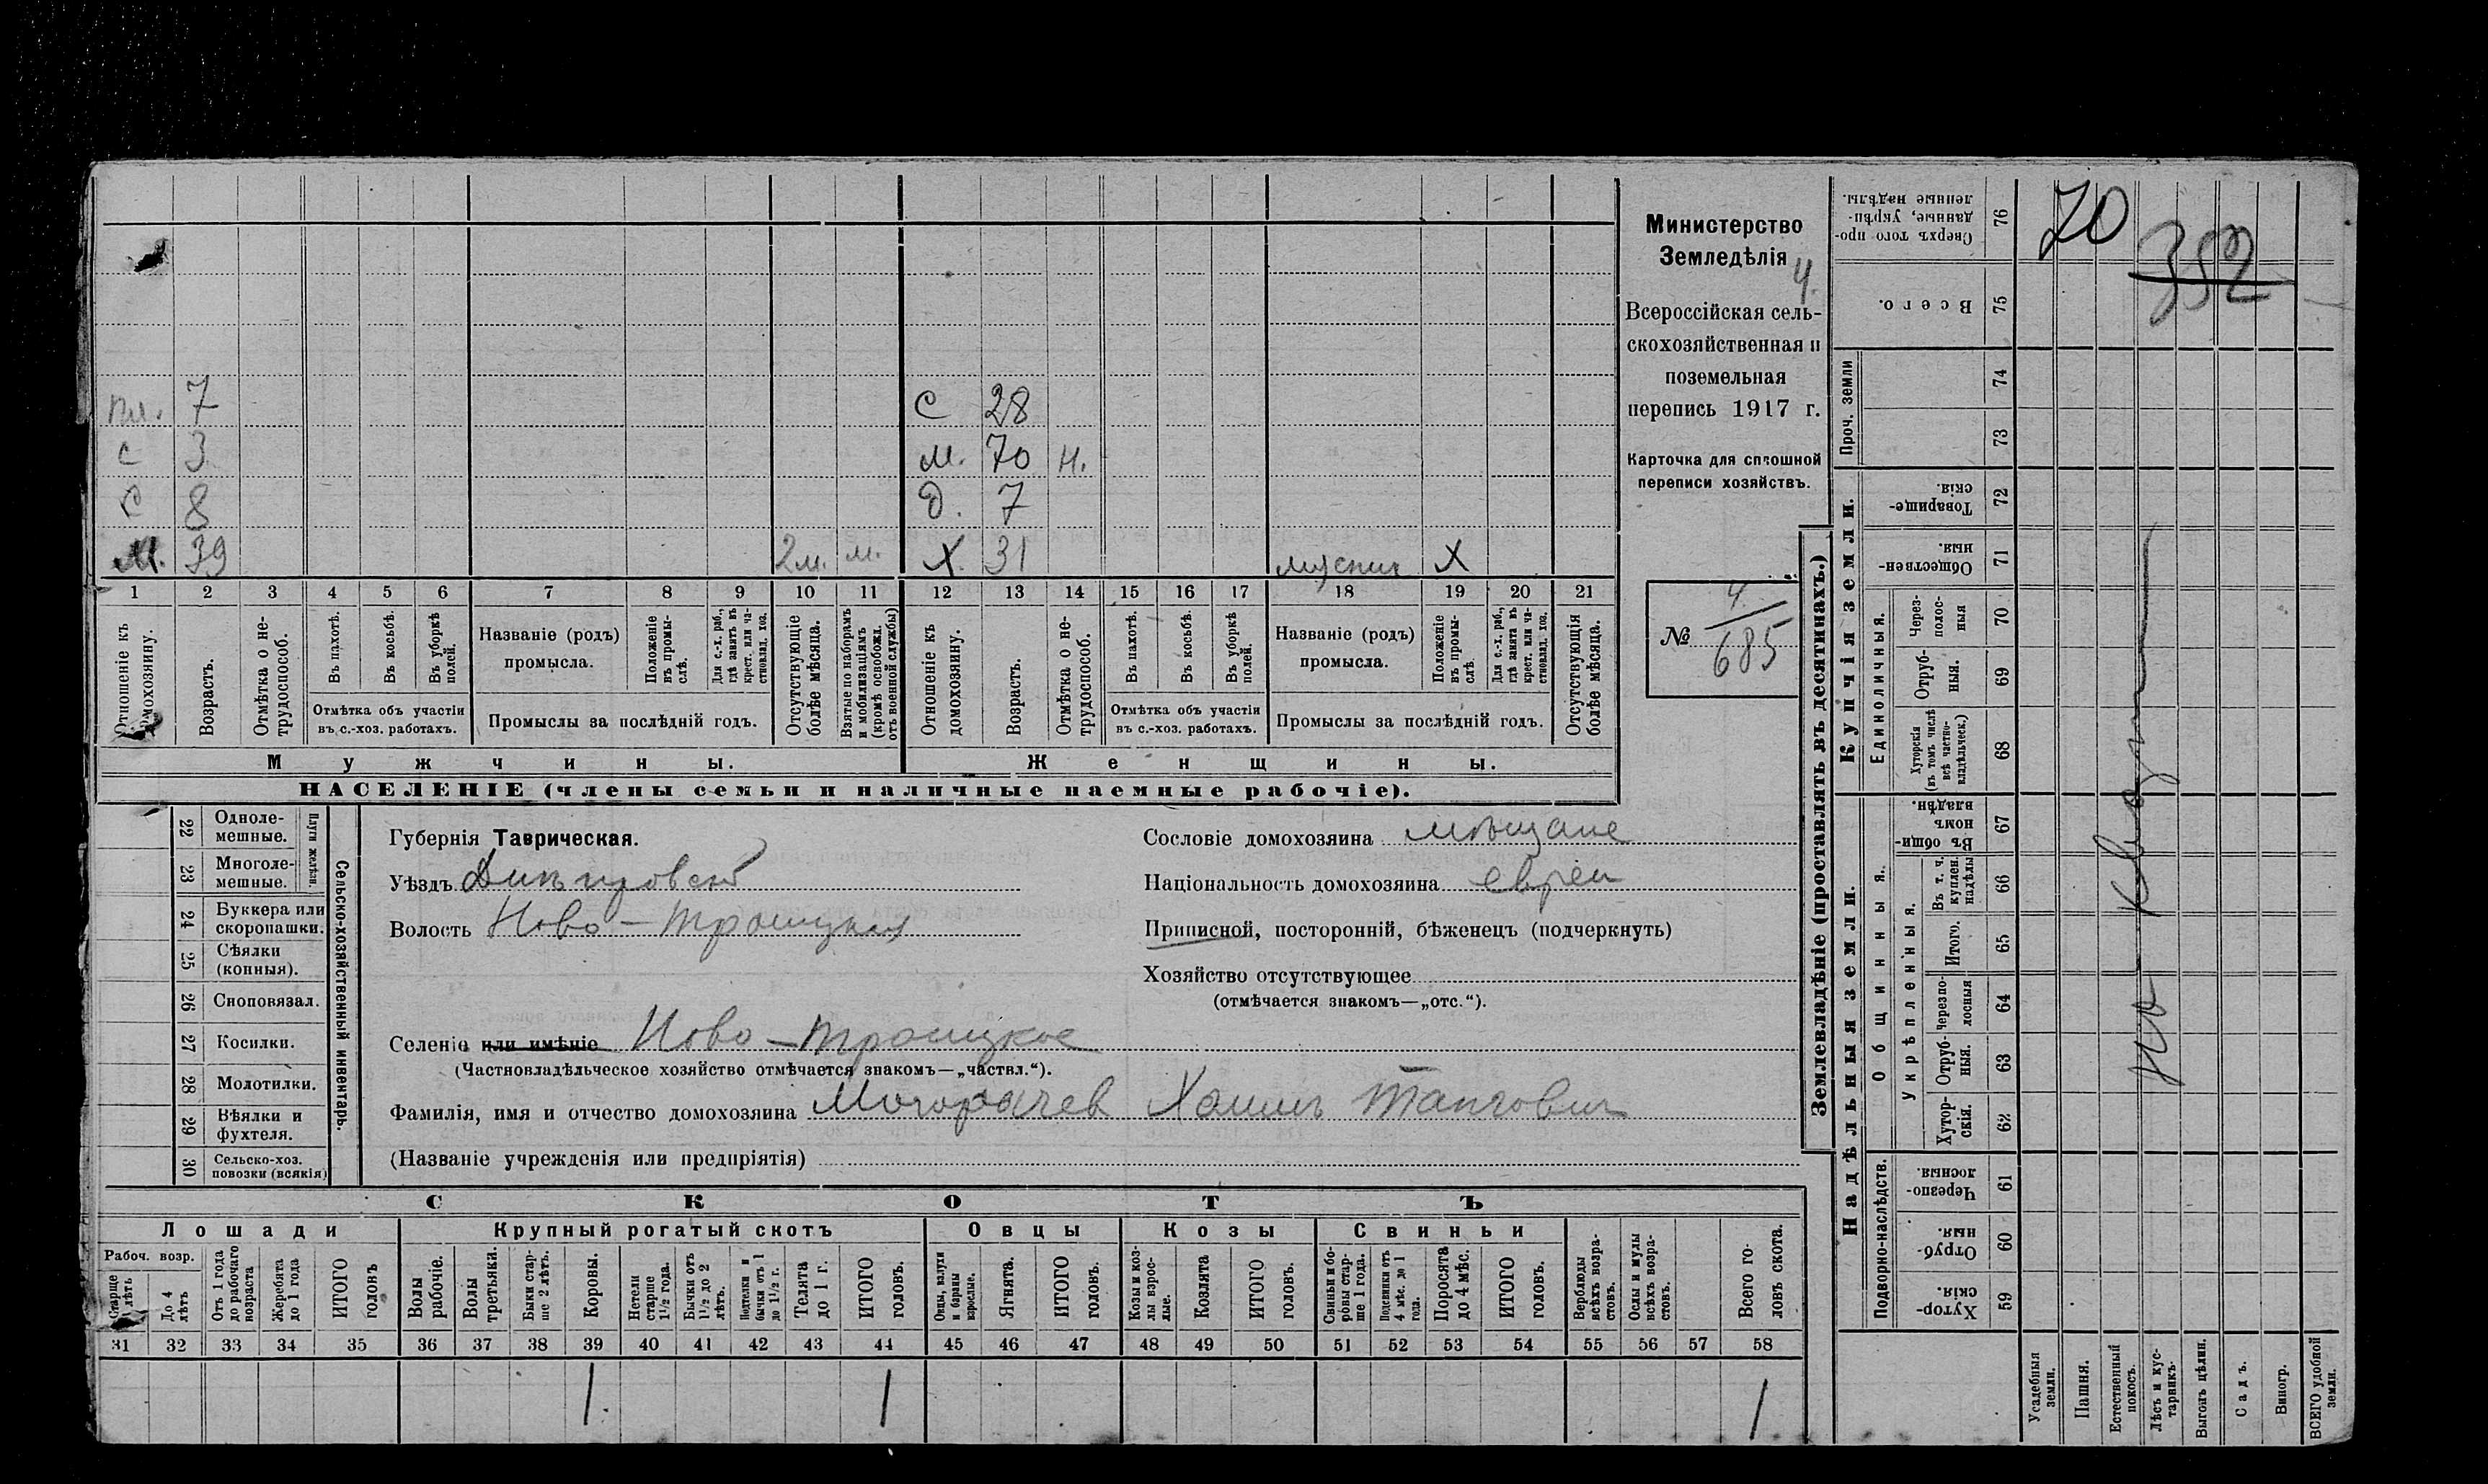 Министерство
Земледѣлія
4.
Всероссійская сель-
скохозяйственная и
поземельная
перепись 1917 г.
Карточка для сплошной
переписи хозяйствъ.
№ 4/685
70
352
пл. 7 С 28
с 3 М. 70 н.
с 8 д. 7
М. 39 2м. м. Х. 31 Х
1 2 3 4 5 6 7 8 9 10 11 12 13 14 15 16 17 18 19 20 21
Отношеніе къ домохозяину.
Возрастъ.
Отмѣтка о не-
трудоспособ.
Въ пахотѣ.
Въ косьбѣ.
Въ уборкѣ
полей.
Отмѣтка объ участіи
въ с.-хоз. работахъ.
Названіе (родъ)
промысла.
Положеніе
въ промы-
слѣ.
Для с.-х. раб.,
гдѣ занятъ въ
крест. или ча-
стновлад. хоз.
Промыслы за послѣдній годъ.
Отсутствующіе
болѣе мѣсяца.
Взятые по наборамъ
и мобилизаціямъ
(кромѣ освобожд.
отъ военной службы)
Отношеніе къ
домохозяину.
Возрастъ.
Отмѣтка о не-
трудоспособ.
Въ пахотѣ.
Въ косьбѣ.
Въ уборкѣ
полей.
Отмѣтка объ участіи
въ с.-хоз. работахъ.
Названіе (родъ)
промысла.
Положеніе
въ промы-
слѣ.
Для с.-х. раб.,
гдѣ занята въ
крест. или ча-
стновлад. хоз.
Промыслы за послѣдній годъ.
Отсутствующія
болѣе мѣсяца.
Мужчины.
Женщины.
НАСЕЛЕНІЕ (члены семьи и наличные наемные рабочіе).
22 Одноле-
мешные.
23 Многоле-
мешные.
Плуги желѣзн.
24 Буккера или
скоропашки.
25 Сѣялки
(конныя).
26 Сноповязал.
27 Косилки.
28 Молотилки.
29 Вѣялки и
фухтеля.
30 Сельско-хоз.
повозки (всякія)
Сельско-хозяйственный инвентарь.
Губернія Таврическая.
Уѣздъ Днѣпровскій
Волость Ново-Троицкая
Селеніе или имѣніе Ново-Троицкое
(Частновладѣльческое хозяйство отмѣчается знакомъ—„частвл.“).
Фамилія, имя и отчество домохозяина Могорачев Хаимъ
(Названіе учрежденія или предпріятія)
Сословіе домохозяина мѣщане
Національность домохозяина евреи
Приписной, посторонній, бѣженецъ (подчеркнуть)
Хозяйство отсутствующее
(отмѣчается знакомъ—„отс.“).
СКОТЪ
Лошади
Крупный рогатый скотъ
Овцы
Козы
Свиньи
Рабоч. возр.
Старше
4 лѣтъ
До 4
лѣтъ
Отъ 1 года
до рабочаго
возраста
Жеребята
до 1 года
ИТОГО
головъ
Волы
рабочіе.
Волы
третьяки.
Быки стар-
ше 2 лѣтъ.
Коровы.
Нетели
старше
1½ года.
Бычки отъ
1½ до 2
лѣтъ.
Подтелки и
бычки отъ 1
до 1½ г.
Телята
до 1 г.
ИТОГО
головъ.
Овцы, валухи
и бараны
взрослые.
Ягнята.
ИТОГО
головъ.
Козы и коз-
лы взрос-
лые.
Козлята
ИТОГО
головъ.
Свиньи и бо-
ровы стар-
ше 1 года.
Подсвинки отъ
4 мѣс. до 1
года.
Поросята
до 4 мѣс.
ИТОГО
головъ.
Верблюды
всѣхъ возра-
стовъ.
Ослы и мулы
всѣхъ возра-
стовъ.
Всего го-
ловъ скота.
31 32 33 34 35 36 37 38 39 40 41 42 43 44 45 46 47 48 49 50 51 52 53 54 55 56 57 58
1. 1 1
Землевладѣніе (проставлять въ десятинахъ.)
Купчія земли.
Надѣльныя земли.
Проч. земли
Единоличныя.
Общинныя.
Укрѣпленныя.
Подворно-наслѣдств.
Сверхъ того про-
данные, укрѣп-
ленные надѣлы. 76
Всего. 75
74
73
Товарище-
скія. 72
Обществен-
ныя. 71
Через-
полос-
ныя 70
Отруб-
ныя. 69
Хуторскія
(въ томъ числѣ
всѣ частно-
владѣльческ.) 68
Въ общи-
номъ
владѣн. 67
Въ т. ч.
куплен.
надѣлы 66
Итого. 65
Черезпо-
лосныя 64
Отруб-
ныя. 63
Хутор-
скія. 62
Черезпо-
лосныя. 61
Отруб-
ныя. 60
Хутор-
скія. 59
Усадебныя
земли.
Пашня.
Естественный
покосъ.
Лѣсъ и кус-
тарникъ.
Выгонъ цѣлин.
Садъ.
Виногр.
ВСЕГО удобной
земли.